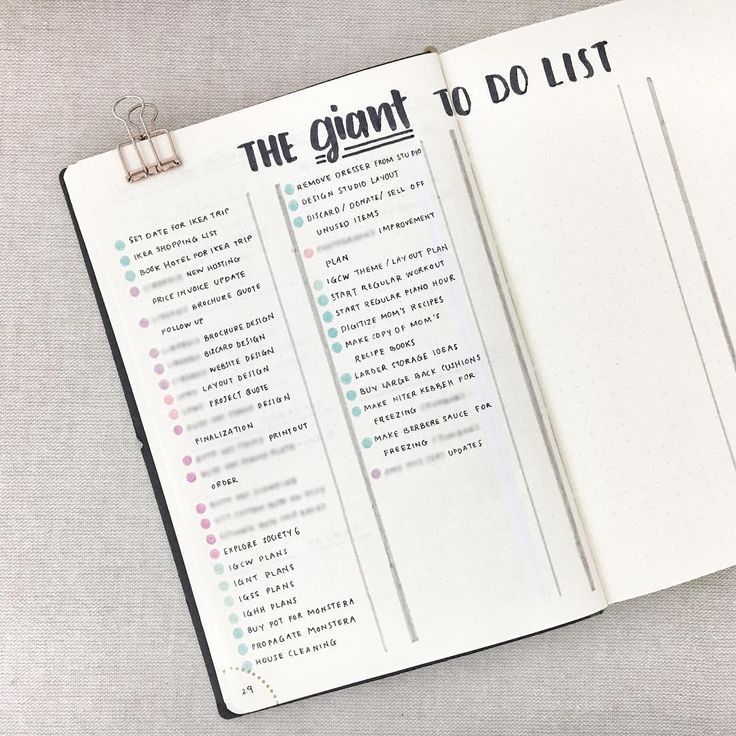 THE giant TO DO LIST
SET DATE FOR IKEA TRIP
IKEA SHOPPING LIST
BOOK HOTEL FOR IKEA TRIP
NEW HOSTING
PRICE INVOICE UPDATE
BROCHURE QUOTE
FOLLOW UP
BROCHURE DESIGN
BIZCARD DESIGN
WEBSITE DESIGN
LAYOUT DESIGN
PROJECT QUOTE
DESIGN
FINALIZATION
PRINTOUT
ORDER
EXPLORE SOCIETY 6
IGCW PLANS
IGNT PLANS
IGSS PLANS
IGHH PLANS
BUY POT FOR MONSTERA
PROPAGATE MONSTERA
HOUSE CLEANING
29
REMOVE DRESSER FROM STUDIO
DESIGN STUDIO LAYOUT
DISCARD/DONATE/SELL OFF
UNUSED ITEMS
IMPROVEMENT
PLAN
IGCW THEME/LAYOUT PLAN
START REGULAR WORKOUT
START REGULAR PIANO HOUR
DIGITIZE MOM'S RECIPES
MAKE COPY OF MOM'S
RECIPE BOOKS
LARDER STORAGE IDEAS
BUY LARGE BACK CUSHIONS
MAKE NITER KEBBEH FOR
FREEZING
MAKE BERBERE SAUCE FOR
FREEZING
UPDATES